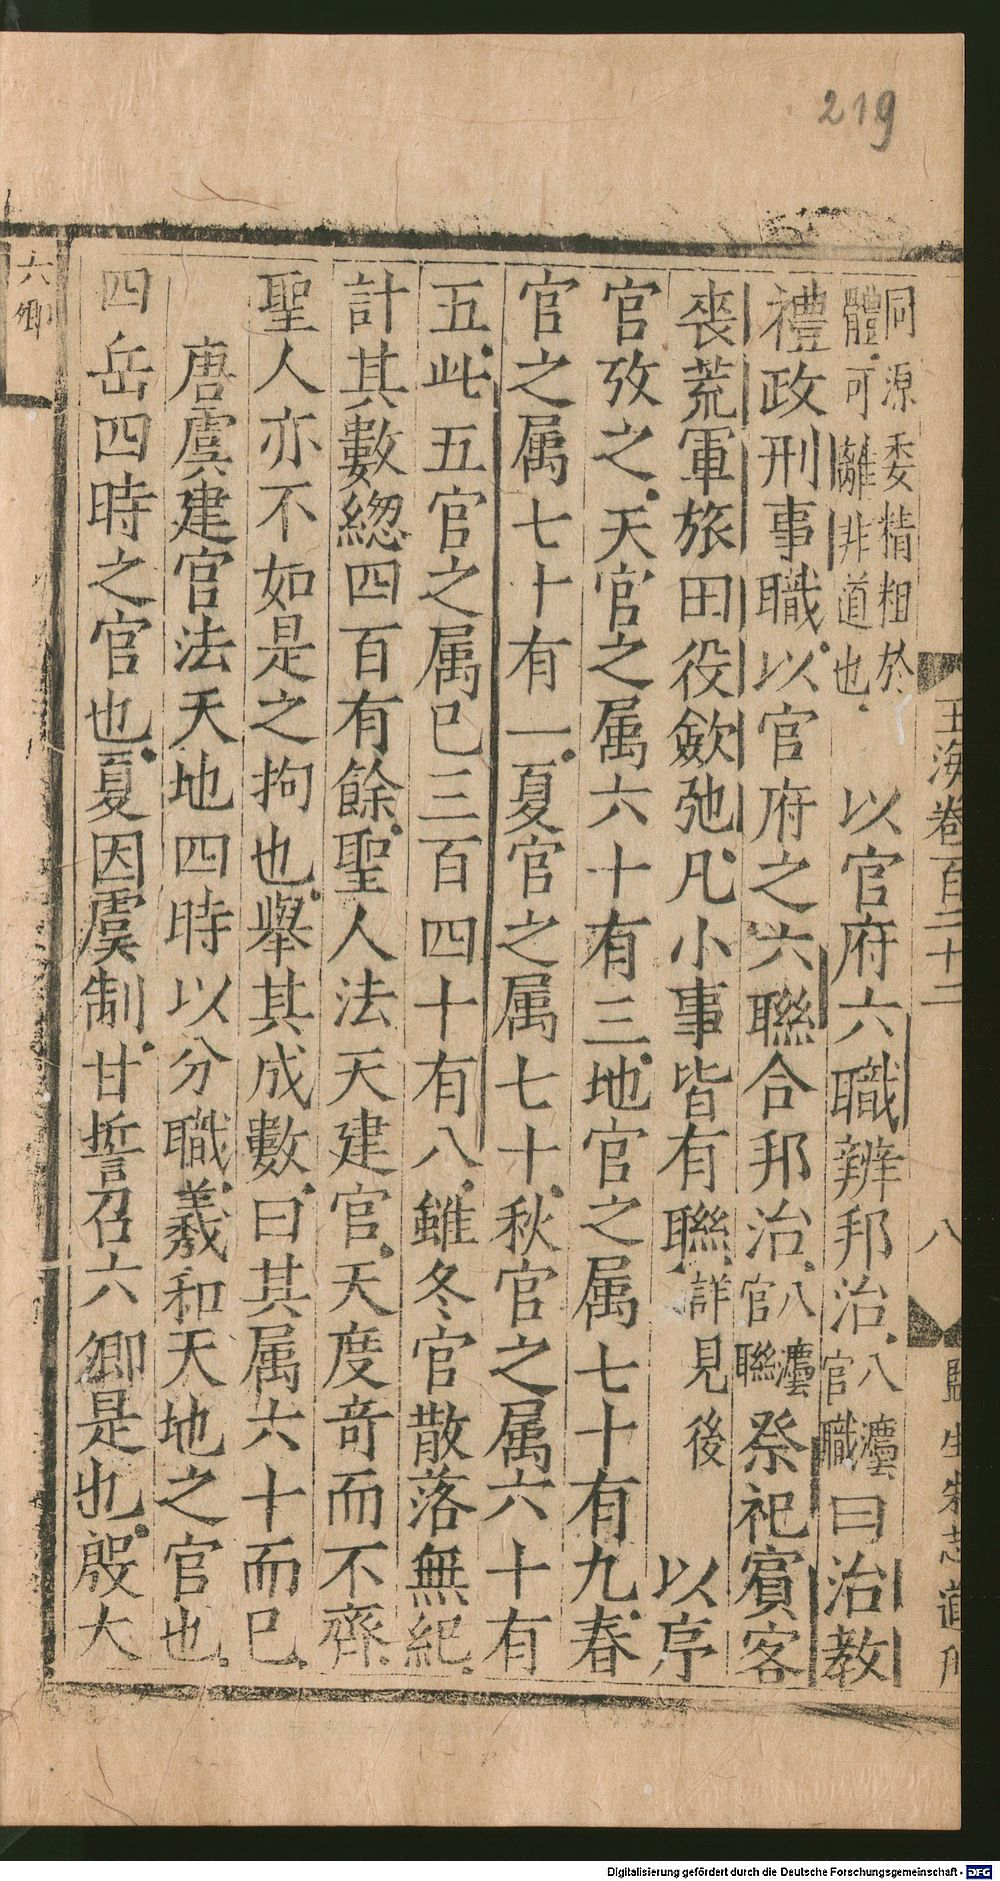 219
玉海卷百二十二
八
同源委精粗於
體可離非道也
以官府六職辨邦治八灋官職曰治教
禮政刑事職以官府之六聯合邦治八灋官聯祭祀賓客
喪荒軍旅田役斂弛凡小事皆有聯詳見後以序
官攷之天官之属六十有三地官之属七十有九春
官之属七十有一夏官之属七十秋官之属六十有
五此五官之属已三百四十有八雖冬官散落無紀
計其數緫四百有餘聖人法天建官天度竒而不齊
聖人亦不如是之拘也舉其成數曰其属六十而已
唐虞建官法天地四時以分職羲和天地之官也
四岳四時之官也夏因虞制甘誓召六卿是也殷大
六卿
Digitalisierung gefördert durch die Deutsche Forschungsgemeinschaft - DFG